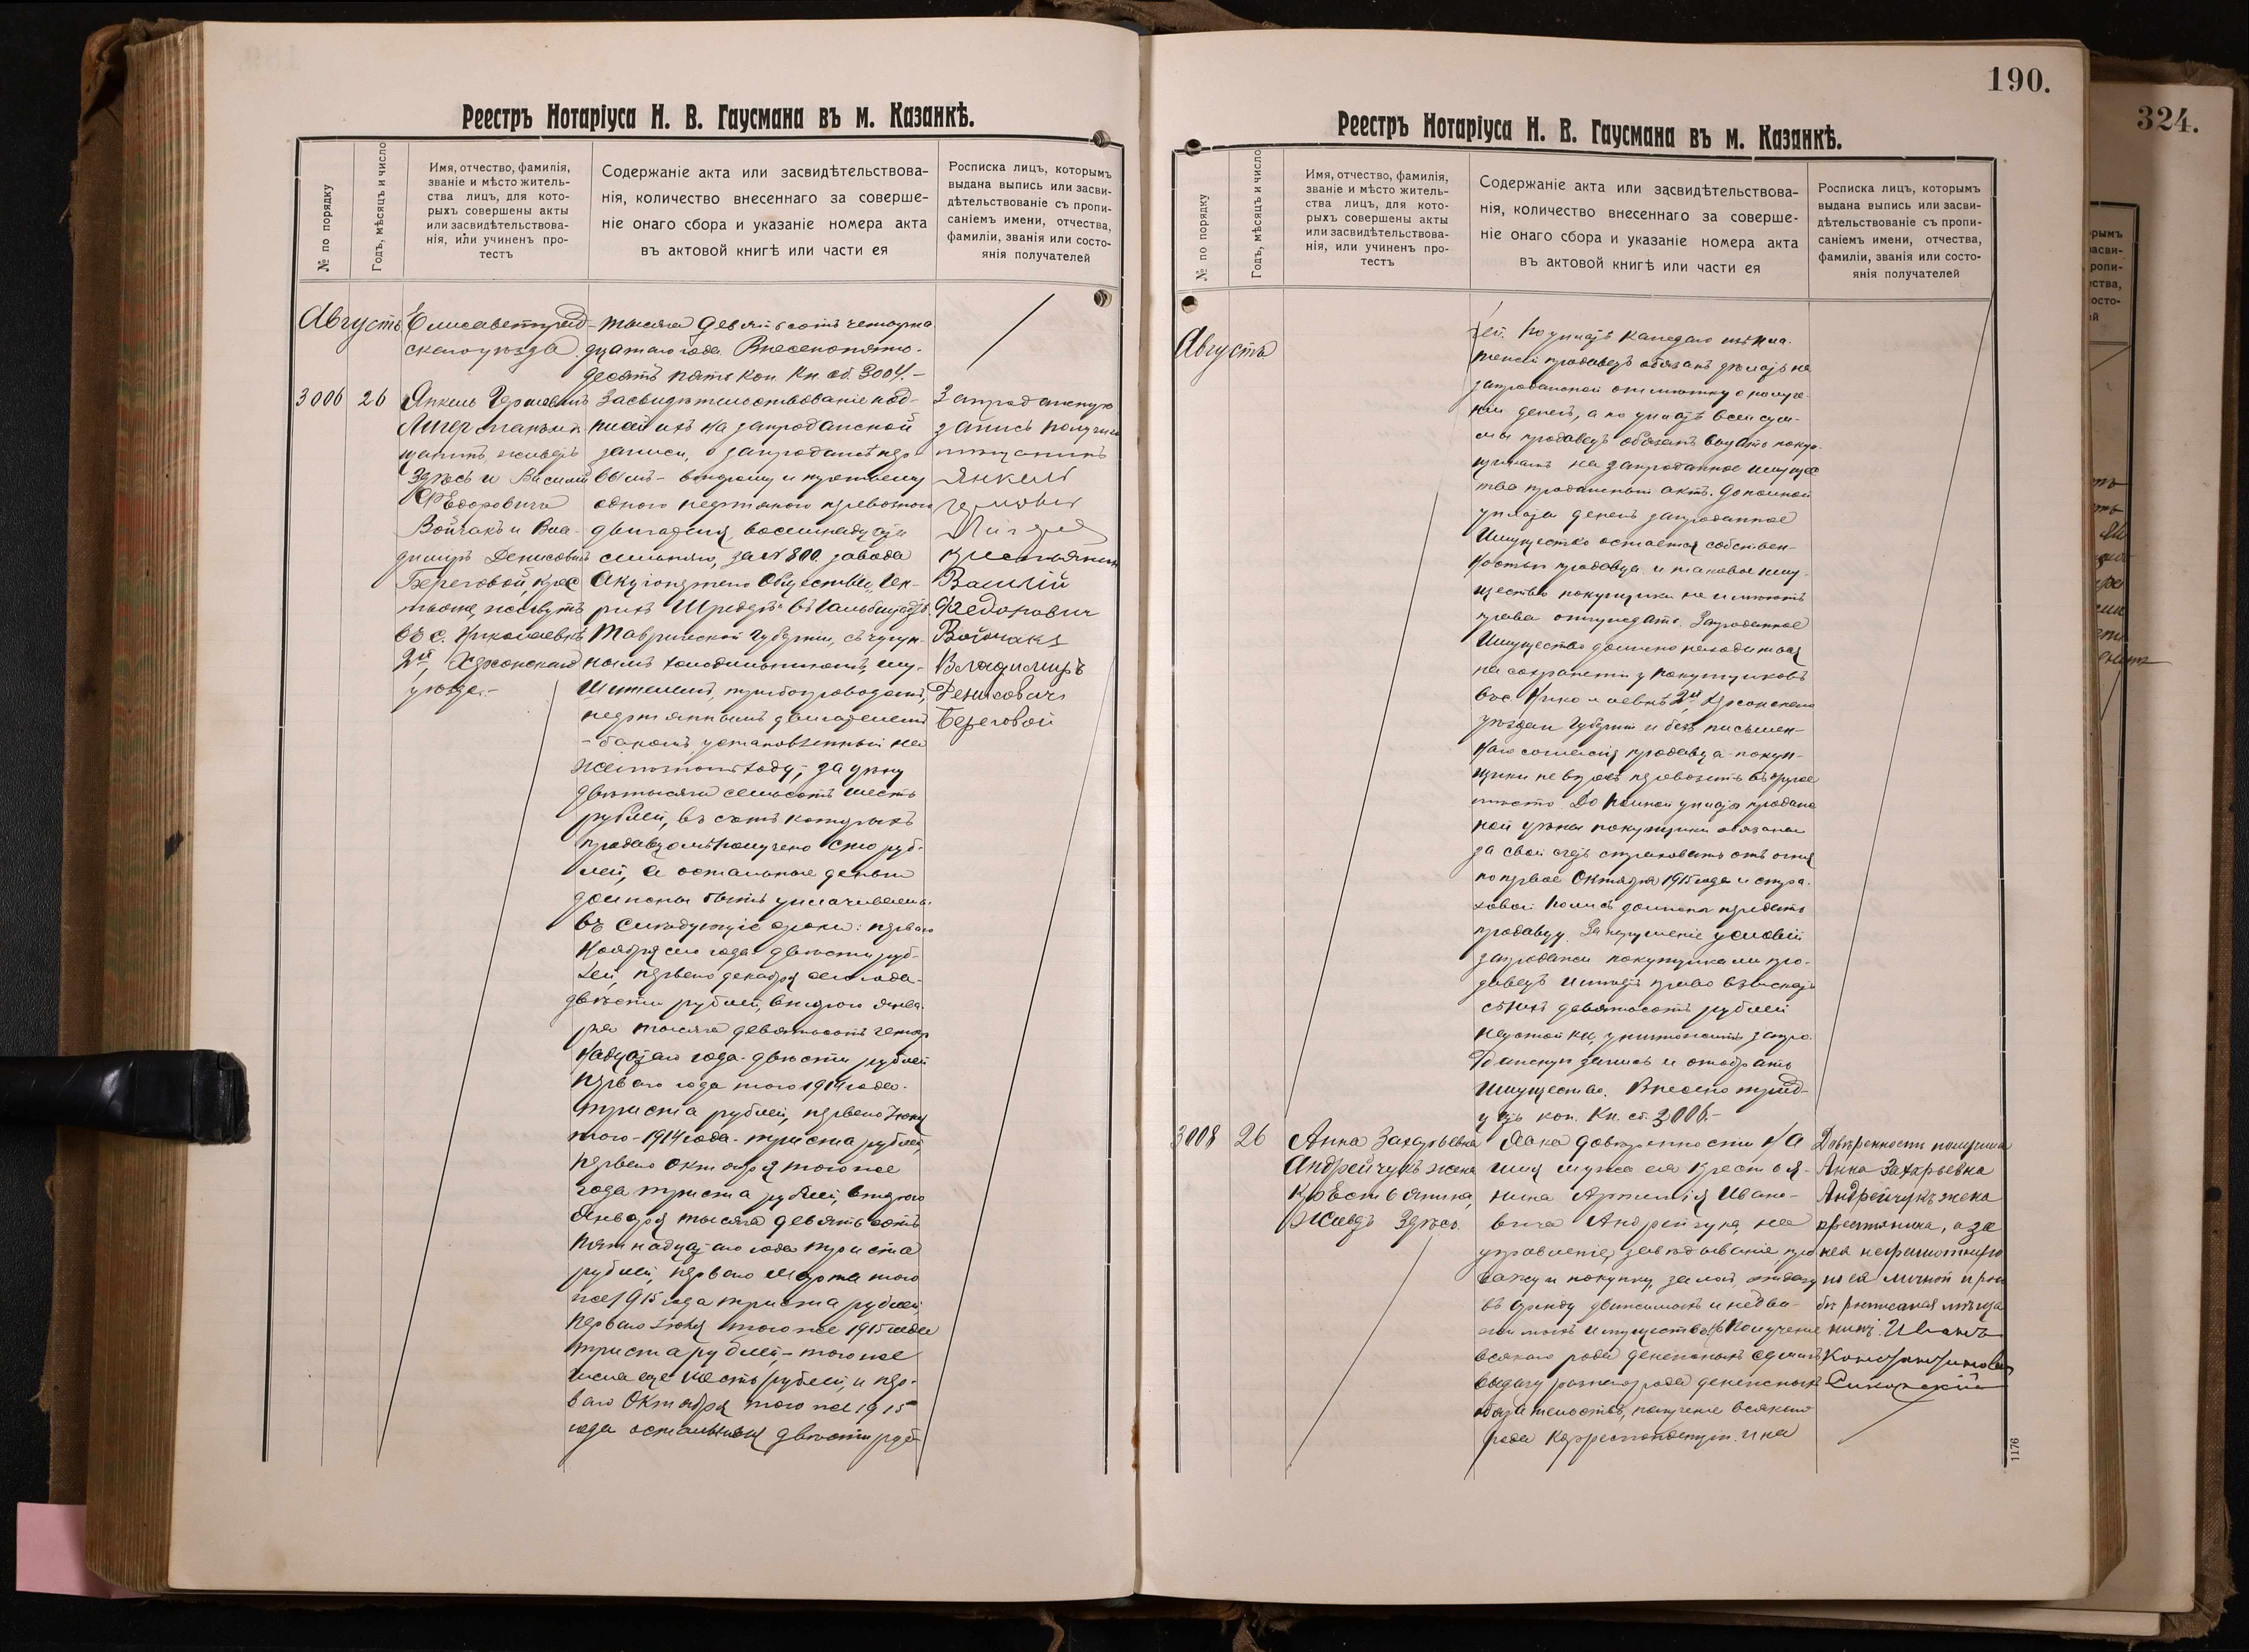 Реестръ Нотаріуса Н. В. Гаусмана въ м. Казанкѣ.
№ по порядку
Годъ, мѣсяцъ и число
Имя, отчество, фамилія,
званіе и мѣсто житель-
ства лицъ, для кото-
рыхъ совершены акты
или засвидѣтельствова-
нія, или учиненъ про-
тестъ
Содержаніе акта или засвидѣтельствова-
нія, количество внесеннаго за соверше-
ніе онаго сбора и указаніе номера акта
въ актовой книгѣ или части ея
Росписка лицъ, которымъ
выдана выпись или засви-
дѣтельствованіе съ пропи-
саніемъ имени, отчества,
фамиліи, званія или состо-
янія получателей
Августъ
Елисаветград-
скаго уѣзда.
тысяча девятьсотъ четырна
дцатаго года. Внесено пять-
десятъ пять коп. Кн. сб. 3004.-
3006
26
Янкель Гершевичъ
щанинъ, живетъ
здѣсь и Василій
Ѳедоровичъ
Войчакъ и Вла-
диміръ Денисовичъ
Береговой, крес
тьяне, живутъ
въ с. Николаевкѣ
2й, Херсонскаго
уѣзда.-
Засвидѣтельствованіе под-
писей ихъ на запроданской
записи, о запродажѣ пер-
вымъ - второму и третьему
одного нефтяного
двигателя, восемнадцати
сильнаго, за № 800. завода
Акціонернаго Общества „Ген-
рихъ Шредеръ" въ Гальбштадтѣ
Таврической губерніи, съ чугун
нымъ холодильникомъ, глу-
шителемъ, трубопроводомъ,
нефтяннымъ
- бакомъ установленный на
ходу, за цѣну
двѣ тысячи семьсотъ шесть
рублей, въ счетъ которыхъ
продавцомъ получено сто руб-
лей, а остальные деньги
должны быть уплачиваемы
въ слѣдующіе сроки: перваго
Ноября сего года двѣсти руб-
лей, перваго декабря сего года-
двѣсти рублей, второго Янва-
ря тысяча девятьсотъ четыр
надцатаго года - двѣсти рублей
перваго года того 1914 года-
триста рублей, перваго Іюня
того - 1914 года - триста рублей,
перваго Октября того же
года триста рублей, второго
Января тысяча девятьсотъ
пятнадцатаго года триста
рублей, перваго Марта того
же 1915 года триста рублей,
перваго Іюня того же 1915 года
триста рублей, - того же
числа еще шесть рублей, и пер-
ваго Октября того же 1915
года остальныя двѣсти руб-
Запроданную
запись получили
мѣщанинъ
Янкель
крестьянинъ
Василій
Федорович
Войчакъ
Владимиръ
Денисовичъ
Береговой
190.
Реестръ Нотаріуса Н. В. Гаусмана въ м. Казанкѣ.
№ по порядку
Годъ, мѣсяцъ и число
Имя, отчество, фамилія,
званіе и мѣсто житель-
ства лицъ, для кото-
рыхъ совершены акты
или засвидѣтельствова-
нія, или учиненъ про-
тестъ
Содержаніе акта или засвидѣтельствова-
нія, количество внесеннаго за соверше-
ніе онаго сбора и указаніе номера акта
въ актовой книгѣ или части ея
Росписка лицъ, которымъ
выдана выпись или засви-
дѣтельствованіе съ пропи-
саніемъ имени, отчества,
фамиліи, званія или состо-
янія получателей
Августъ
лей. По уплатѣ каждаго
продавецъ обязанъ дѣлать на
запроданской отмѣтку о получе-
ніи денегъ, а по уплатѣ всей сум-
мы продавецъ обязанъ выдать поку-
щикамъ на запроданное имущес
тво продажный актъ. До полной
уплаты денегъ запроданное
Имущество остается собствен-
ностью продавца и таковое иму-
щество покупщики не имѣютъ
права отчуждать. Запроданное
Имущество должно находиться
на сохраненіи у покупщиковъ
въ с. Николаевкѣ 2й Херсонскаго
уѣзда и губерніи и безъ письмен-
наго согласія продавца покуп-
щики не въ правѣ перевозить въ другое
мѣсто. До полной уплаты продаж
ной цѣны покупщики обязаны
за свой счетъ страховать отъ огня
по первое Октября 1915 года и стра-
ховой полисъ должны предать
продавцу. За нарушеніе условій
запродажи покупщиками про-
давецъ имѣетъ право взыскать
съ нихъ девятьсотъ рублей
неустойки, уничтожить запро-
данскую запись и отобрать
Имущество. Внесено трид-
цать коп. Кн. сб. 3006.-
3008
26
Анна Захарьевна
Андрейчукъ жена
крестьянина,
живетъ здѣсь.
Явка довѣренности на
имя мужа ея крестья-
нина Артемія Ивано-
вича Андрейчука, на
управленіе, завѣдываніе, про
дажу и покупку, залогъ, отдачу
въ аренду движимаго и недви-
жимаго имущества, полученіе
всякаго рода денежныхъ суммъ
выдачу разнаго рода денежныхъ
обязательствъ, полученіе всякаго
рода корреспонденціи и на
Довѣренность получила
Анна Захарьевна
Андрейчукъ жена
крестьянина, а за
нея неграмотную
по ея личной прось
бѣ росписался мѣща
нинъ Иванъ
Константиновъ
1176
324.